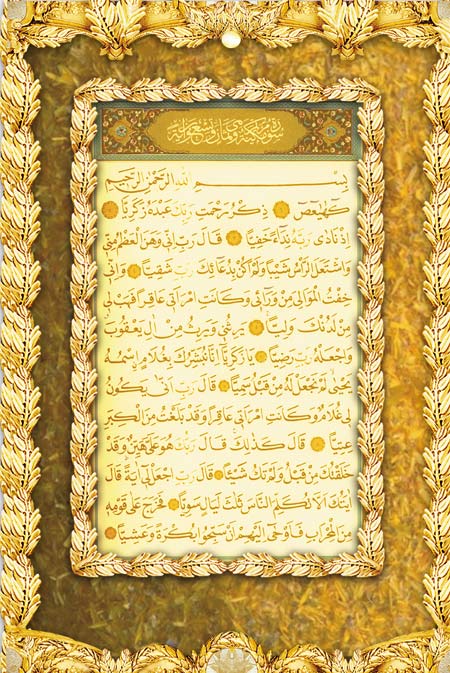 سورة مريم مكية وهي ثمان وتسعون آية
بِسْمِ اللهِ الرَّحْمٰنِ الرَّحِيمِ
كٓهٰيٰعٓصٓ ذِكْرُ رَحْمَتِ رَبِّكَ عَبْدَهُ زَكَرِيَّا
اِذْ نَادٰى رَبَّهُ نِدَٓاءً خَفِيًّا قَالَ رَبِّ اِنّٖى وَهَنَ الْعَظْمُ مِنّٖى
وَاشْتَعَلَ الرَّاْسُ شَيْبًا وَلَمْ اَكُنْ بِدُعَٓائِكَ رَبِّ شَقِيًّا وَاِنّٖى
خِفْتُ الْمَوَالِىَ مِنْ وَرَٓائٖى وَكَانَتِ امْرَاَتٖى عَاقِرًا فَهَبْ لٖى
مِنْ لَدُنْكَ وَلِيًّا يَرِثُنٖى وَيَرِثُ مِنْ اٰلِ يَعْقُوبَ
وَاجْعَلْهُ رَبِّ رَضِيًّا يَا زَكَرِيَّٓا اِنَّا نُبَشِّرُكَ بِغُلَامٍ اسْمُهُ
يَحْيٰى لَمْ نَجْعَلْ لَهُ مِنْ قَبْلُ سَمِيًّا قَالَ رَبِّ اَنّٰى يَكُونُ
لٖى غُلَامٌ وَكَانَتِ امْرَاَتٖى عَاقِرًا وَقَدْ بَلَغْتُ مِنَ الْكِبَرِ
عِتِيًّا قَالَ كَذٰلِكَ قَالَ رَبُّكَ هُوَ عَلَىَّ هَيِّنٌ وَقَدْ
خَلَقْتُكَ مِنْ قَبْلُ وَلَمْ تَكُ شَيْـًٔا قَالَ رَبِّ اجْعَلْ لٖٓى اٰيَةً قَالَ
اٰيَتُكَ اَلَّا تُكَلِّمَ النَّاسَ ثَلٰثَ لَيَالٍ سَوِيًّا فَخَرَجَ عَلٰى قَوْمِهٖ
مِنَ الْمِحْرَابِ فَاَوْحٰٓى اِلَيْهِمْ اَنْ سَبِّحُوا بُكْرَةً وَعَشِيًّا